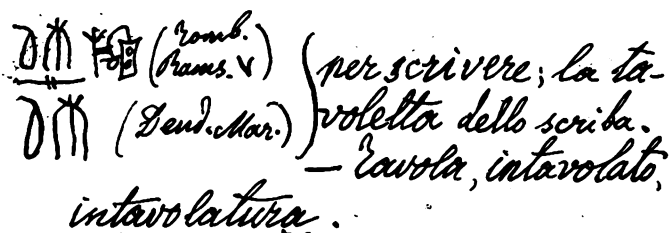 (Tomb.
Rams. V) per scrivere; la ta-
(Dend. Mar.) voletta dello scriba.
— Tavola, intavolato,
intavolatura.